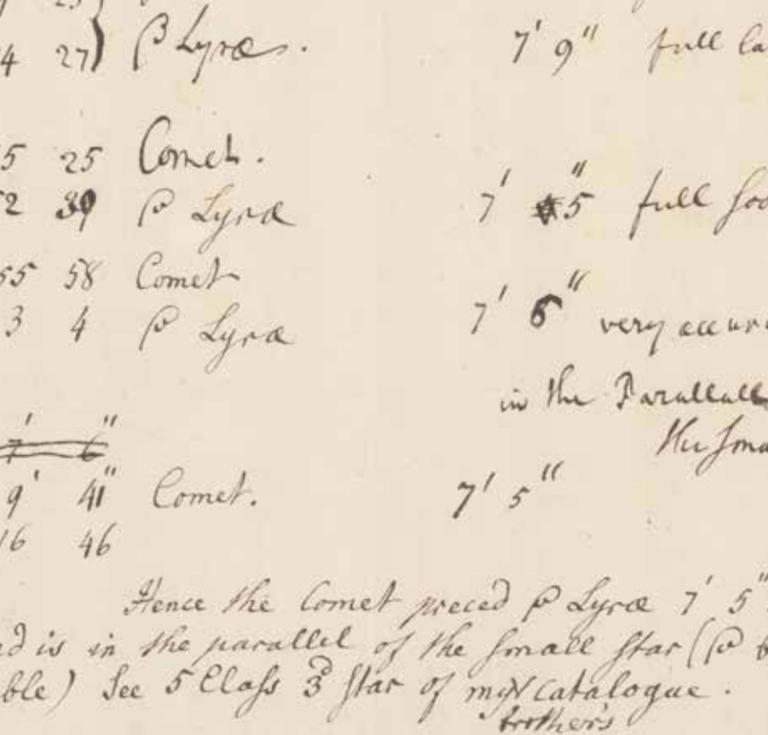 4 27} β Lyræ. 7' 9" full la
5 25 Comet.
2 39 β Lyræ 7' 5" full
55 58 Comet
3 4 β Lyræ 7' 6" very accur
in the Parallall
7' 6" the sma
9' 41" Comet. 7' 5"
16 46
Hence the Comet preced β Lyræ 7' 5"
d is in the parallel of the small star (β
ble) See 5 Class 3d star of my catalogue.
brother's